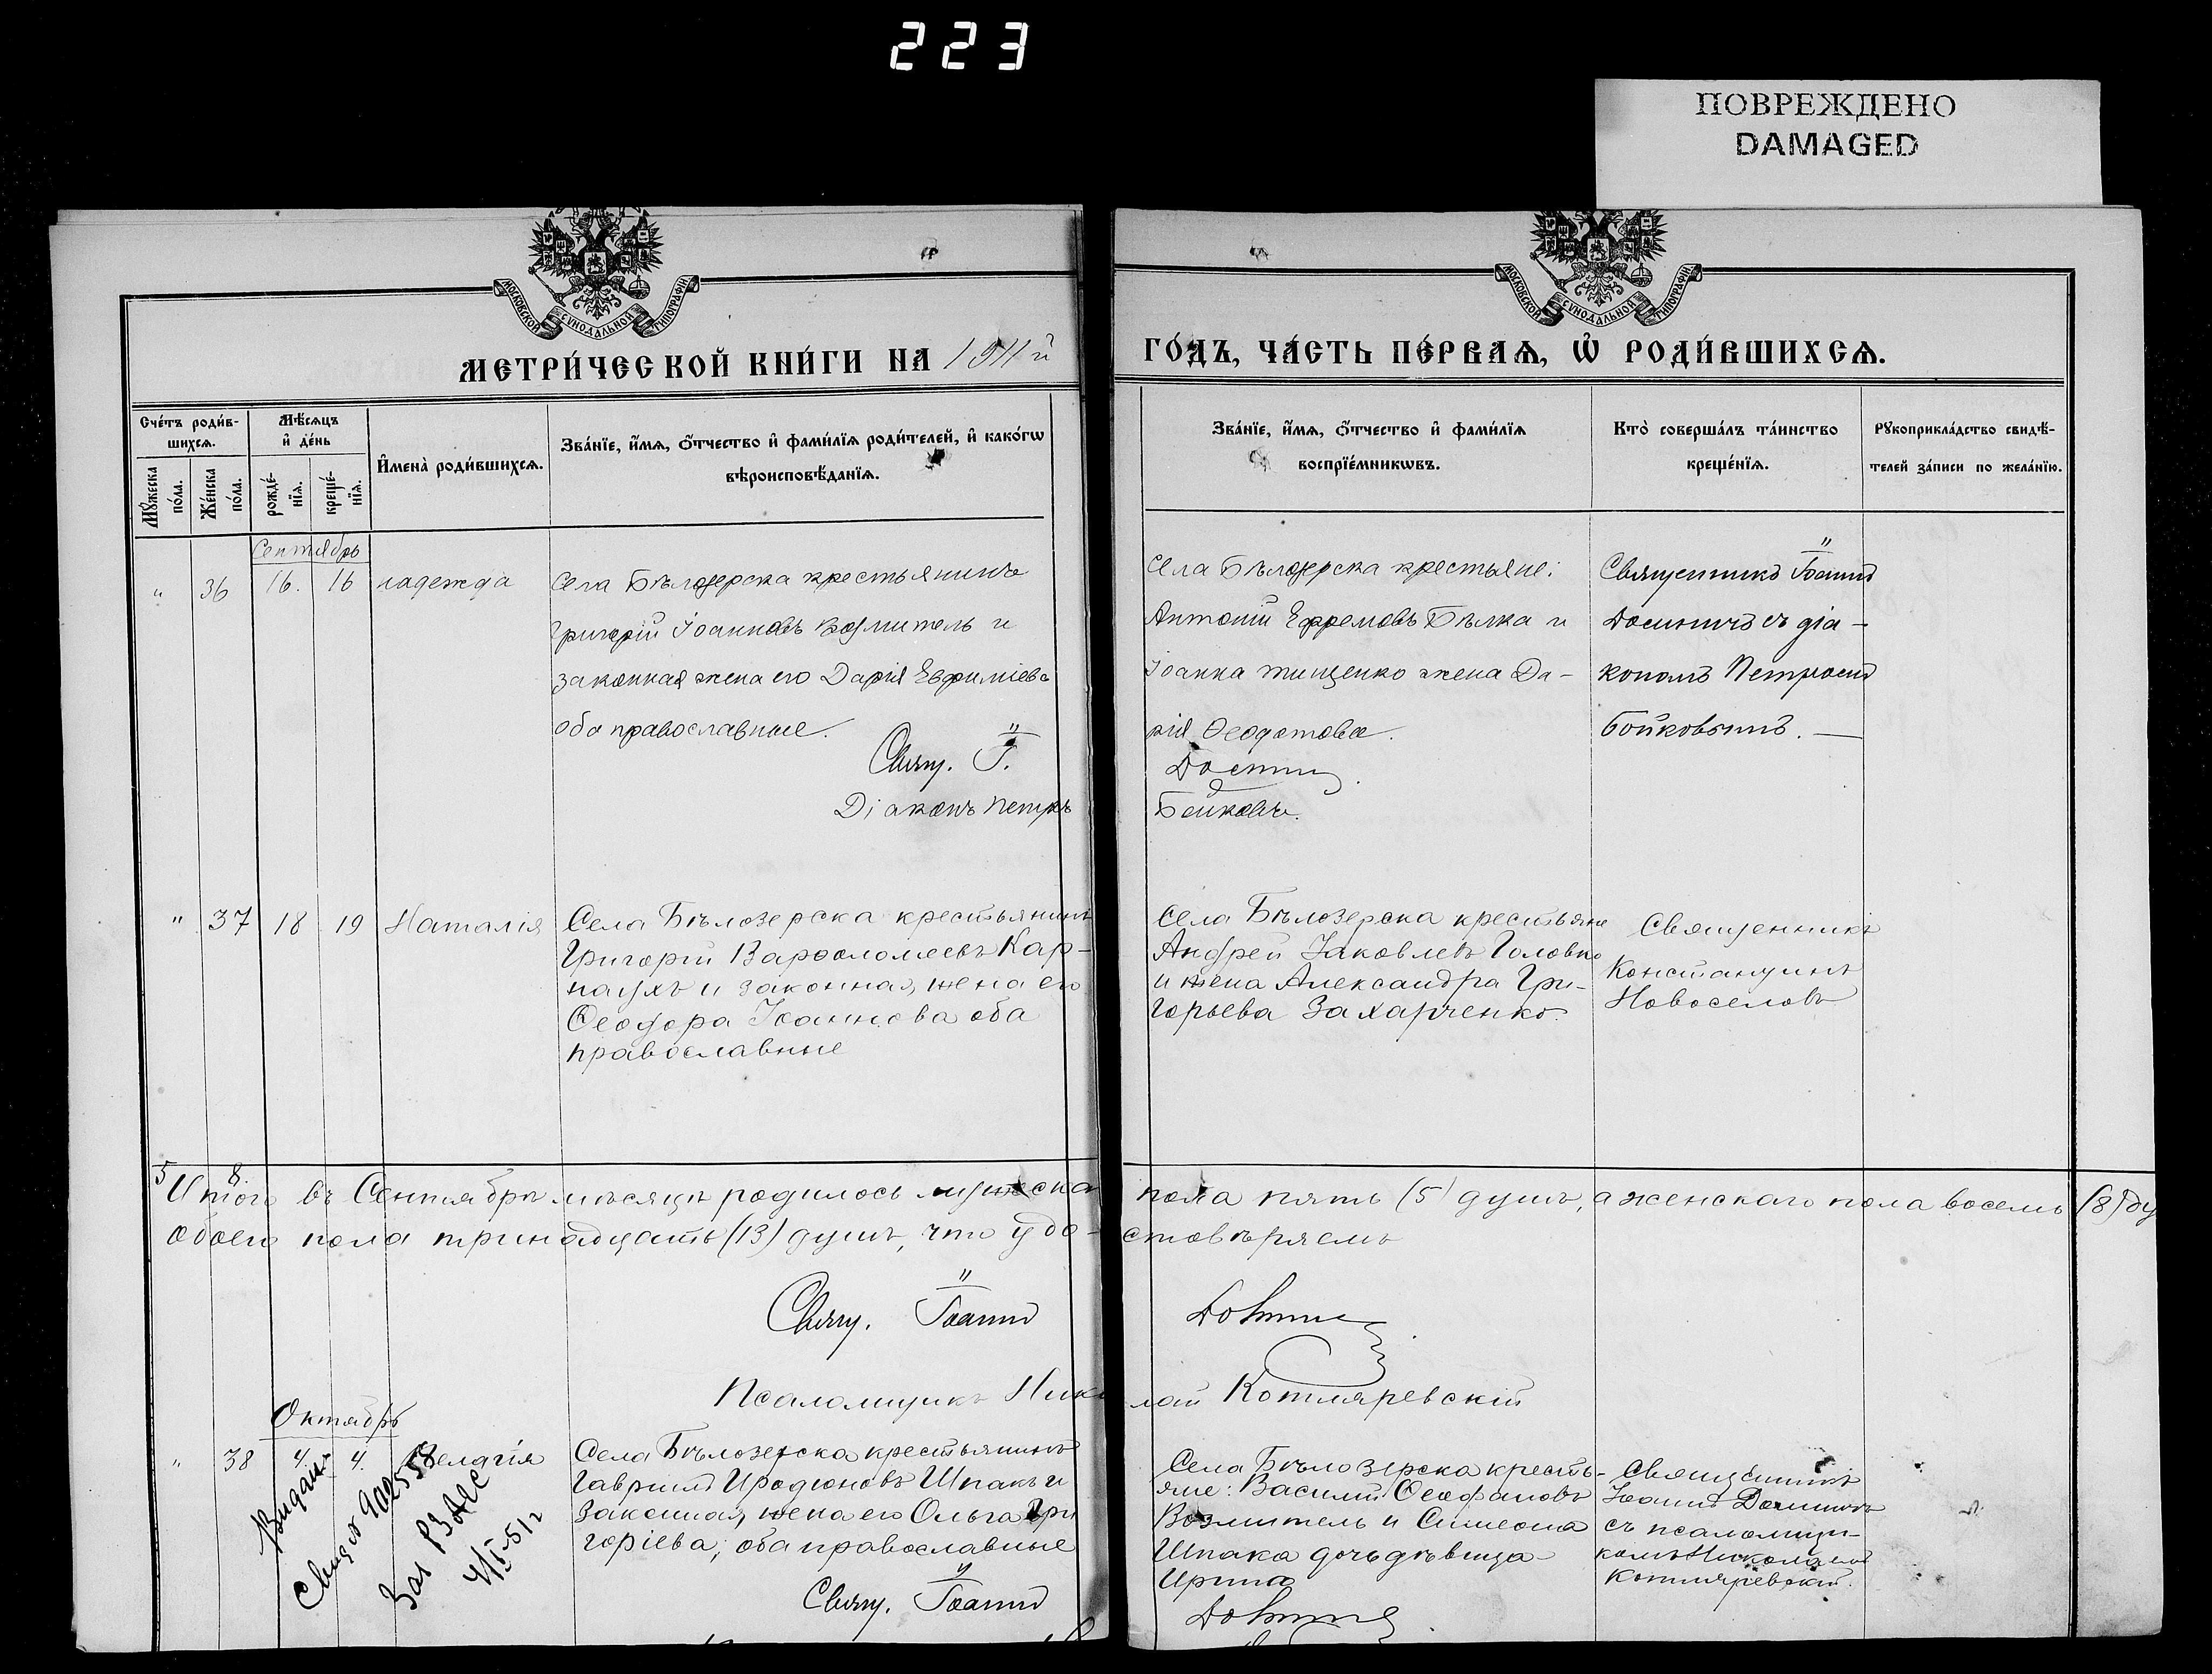 223
ПОВРЕЖДЕНО
DAMAGED
МОСКОВСКОЙ СѴНОДАЛЬНОЙ ТИПОГРАФІИ
МОСКОВСКОЙ СѴНОДАЛЬНОЙ ТИПОГРАФІИ
МЕТРИ́ЧЕСКОЙ КНИ́ГИ НА 1911 й
ГО́ДЪ, ЧА́СТЬ ПЕ́РВАѦ, Ѡ҆ РОДИ́ВШИХСѦ.
Сче́тъ роди́в-
шихсѧ.
Мꙋ́жеска по́ла.
Же́нска по́ла.
Мѣ́сѧцъ
и҆ де́нь
рожде́-
нїѧ.
креще́-
нїѧ.
И҆мена̀ роди́вшихсѧ.
Зва́нїе, и҆́мѧ, ѻ҆́тчество и҆ фами́лїѧ роди́телей, и҆ како́гѡ
вѣроисповѣ́данїѧ.
Зва́нїе, и҆́мѧ, ѻ҆́тчество и҆ фами́лїѧ
воспрїе́мникѡвъ.
Кто̀ соверша́лъ та́инство
креще́нїѧ.
Рꙋкоприкла́дство свидѣ́-
телей за́писи по жела́нїю.
Сентябрь
" 36 16. 16 надежда
Села Бѣлозерска крестьянинъ
Григорій Іоанновъ Возмитель и
законная жена его Дарія Евфиміева
оба православные.
Свящ. І.
Діаконъ Петръ
Села Бѣлозерска крестьяне:
Антоній Ефремовъ Бѣлка и
Іоанна Тищенко жена Да-
рія Ѳеодотова.
Бойковъ.
Священникъ Іоаннъ
съ діа-
кономъ Петромъ
Бойковымъ.
" 37 18 19 Наталія
Села Бѣлозерска крестьянинъ
Григорій Варѳоломеевъ Кар-
наухъ и законная жена его
Ѳеодора Іоаннова оба
православные
Села Бѣлозерска крестьяне
Андрей Іаковлевъ Головко
и жена Александра Гри-
горьева Захарченко.
Священникъ
Константинъ
Новоселовъ
5 8
Итого въ Сентябрѣ мѣсяцѣ родилось мужеска пола пять (5) душъ, а женскаго пола восемь (8) ду
обоего пола тринадцать (13) душъ, что удо-стовѣряемъ
Свящ. Іоаннъ
Псаломщикъ Николай Котляревскій
Октябрь
" 38 4. 4. Пелагія
Видано
Свидот 902558
Заг РЗАГС
4/I-51г
Села Бѣлозерска крестьянинъ
Гавріилъ Иродіоновъ Шпакъ и
законная жена его Ольга Гри
горіева, оба православные
Свящ. Іоаннъ
Села Бѣлозерска кресть-
яне: Василій Ѳеофановъ
Возмитель и Симеона
Шпака дочь дѣвица
Ирина
Священникъ
Іоаннъ
съ псаломщи-
комъ Николаемъ
Котляревскій.